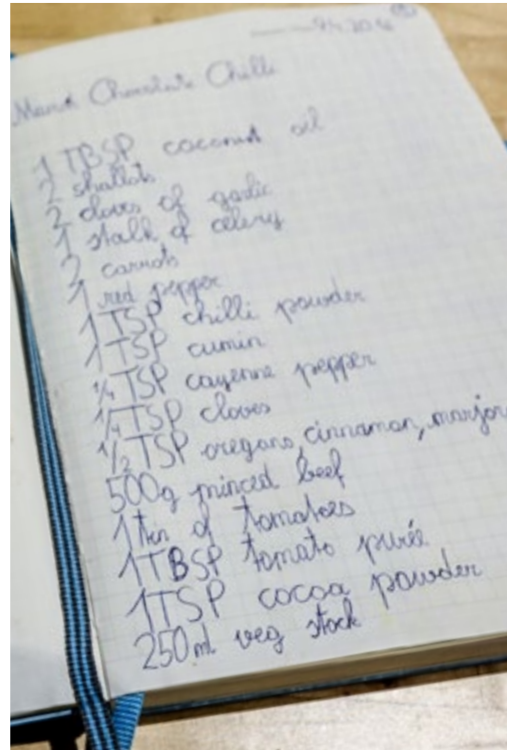 Chocolate Chilli
1 TBSP coconut oil
2 shallots
2 cloves of garlic
1 stalk of celery
2 carrots
1 red pepper
1 TSP chilli powder
1 TSP cumin
1/4 TSP cayenne pepper
1/4 TSP cloves
1/2 TSP oregano, cinnamon, marjor
500g minced beef
1 tin of tomatoes
1 TBSP tomato purée
1 TSP cocoa powder
250 ml veg stock